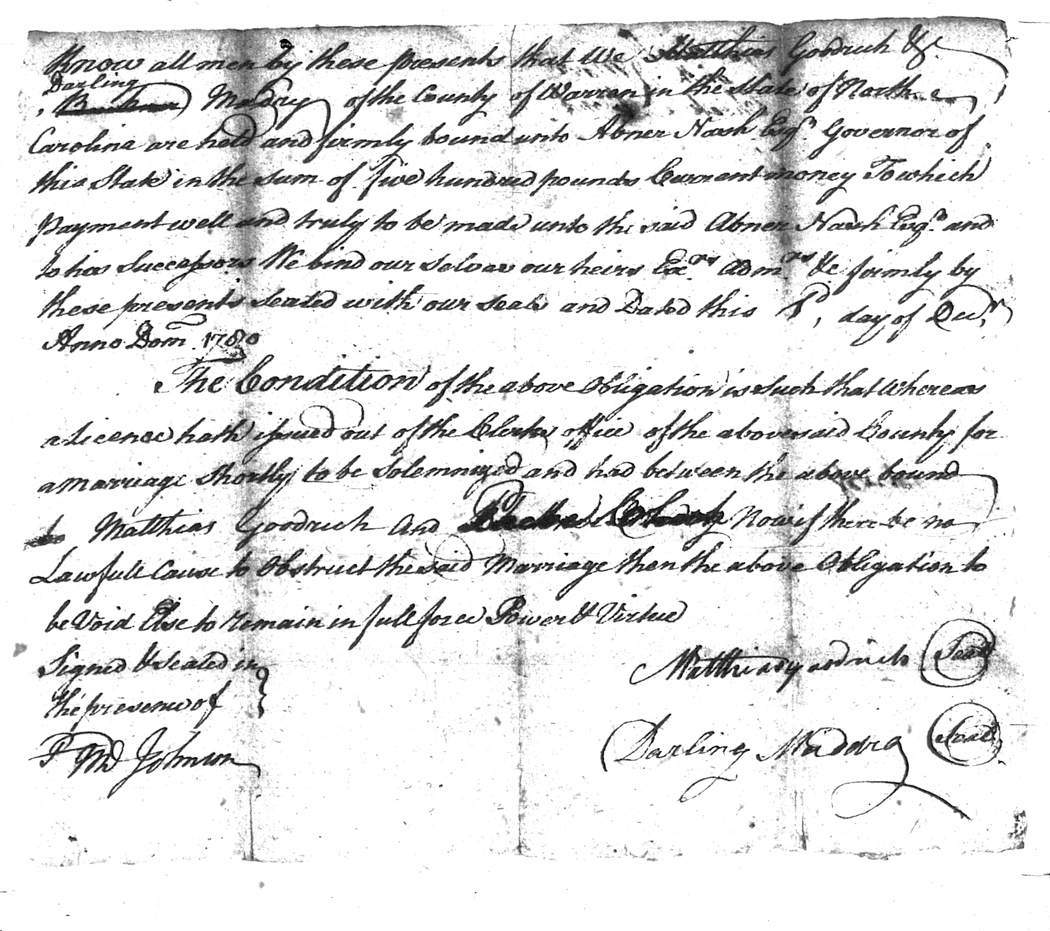 Know all men by these presents that We Matthias Goodrich &
Darling
Madry of the County of Warren in the State of North
Carolina are held and firmly bound unto Abner Nash Esqr. Governor of
this State in the sum of five hundred pounds Current money To which
Payment well and truly to be made unto the said Abner Nash Esqr. and
to his Successors We bind our selves our heirs Exrs Admrs &c firmly by
these presents Sealed with our Seals and Dated this day of Decr.
Anno Dom 1780
The Condition of the above Obligation is Such that Whereas
a licence hath issued out of the Clerks office of the abovesaid County for
a Marriage Shortly to be Solemnized and had between the above bound
Matthias Goodrich And Now if there be no
Lawfull Cause to Obstruct the said Marriage then the above Obligation to
be Void Else to remain in full force Power & Virtue
Signed & Sealed in
the presence of
Johnson
Matthias Goodrich Seal
Darling Maddra Seal